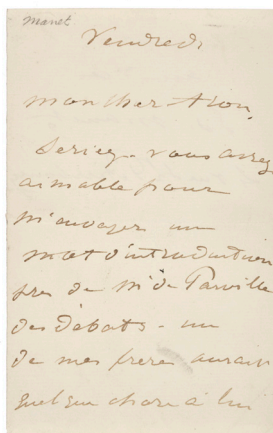 manet
Vendredi
mon cher
Seriez-vous assez
aimable pour
m'envoyer un
mot d'introduction
près de Mr de Parville
des débats - un
de mes freres aurait
quelque chose à lui